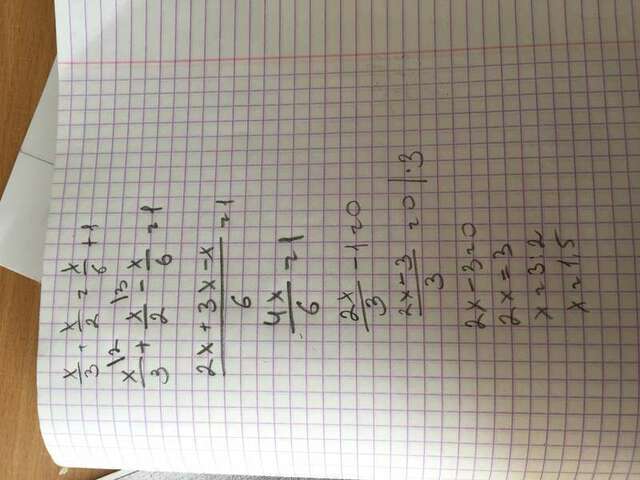 x/3 + x/2 = x/6 + 1
x\2/3 + x\3/2 - x/6 = 1
2x + 3x - x/6 = 1
4x/6 = 1
2x/3 - 1 = 0
2x - 3/3 = 0 | · 3
2x - 3 = 0
2x = 3
x = 3:2
x = 1,5